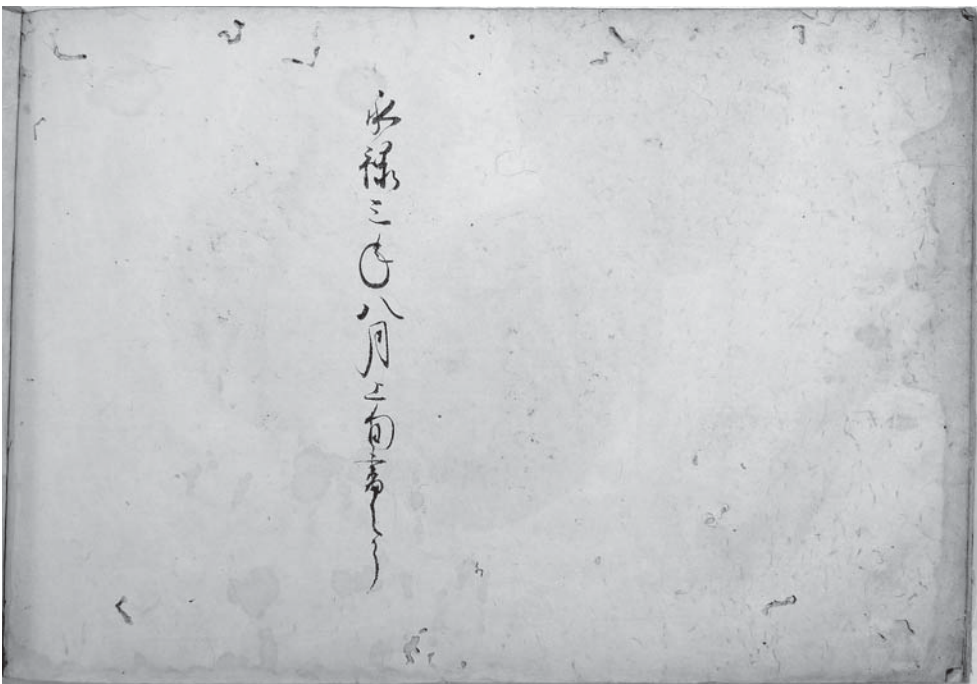 永禄三年八月上旬書之